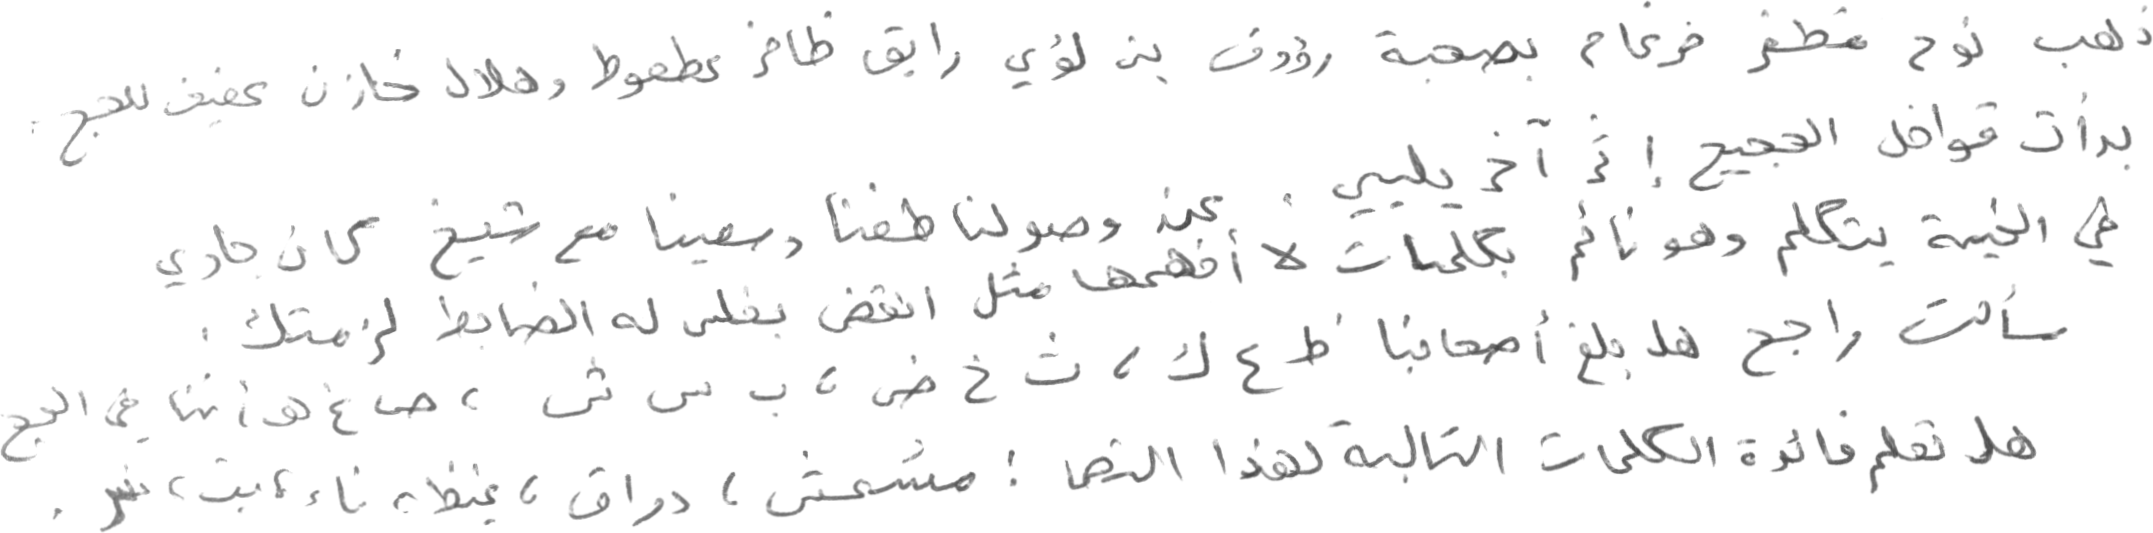 ذهب نوح مظفر ضرغام بصحبة رؤوف بن لؤي رايق ظافر عطعوط وهلال خازن عفيف للحج .
بدأت قوافل الحجيج إثر آخر يلبي . عند وصولنا طفنا وسعينا مع شيخ كان جاري
في الخيمة يتكلم وهو نائم بكلمات لا أفهمها مثل انقض بغلس له الضابط لزمتك .
سألت راجح هل بلغ أصحابنا ظ ع ك ، ث خ ض ، ب س ش ، ص غ هـ أننا في الحج
هل تعلم فائدة الكلمات التالبة لهذا النص : مشمش ، دراق ، غنظ ، ناء ، بت ،